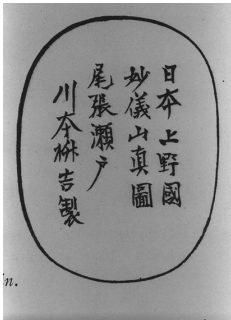 日本上野國
妙儀山真圖
尾張瀬戸
川本桝吉製
in.